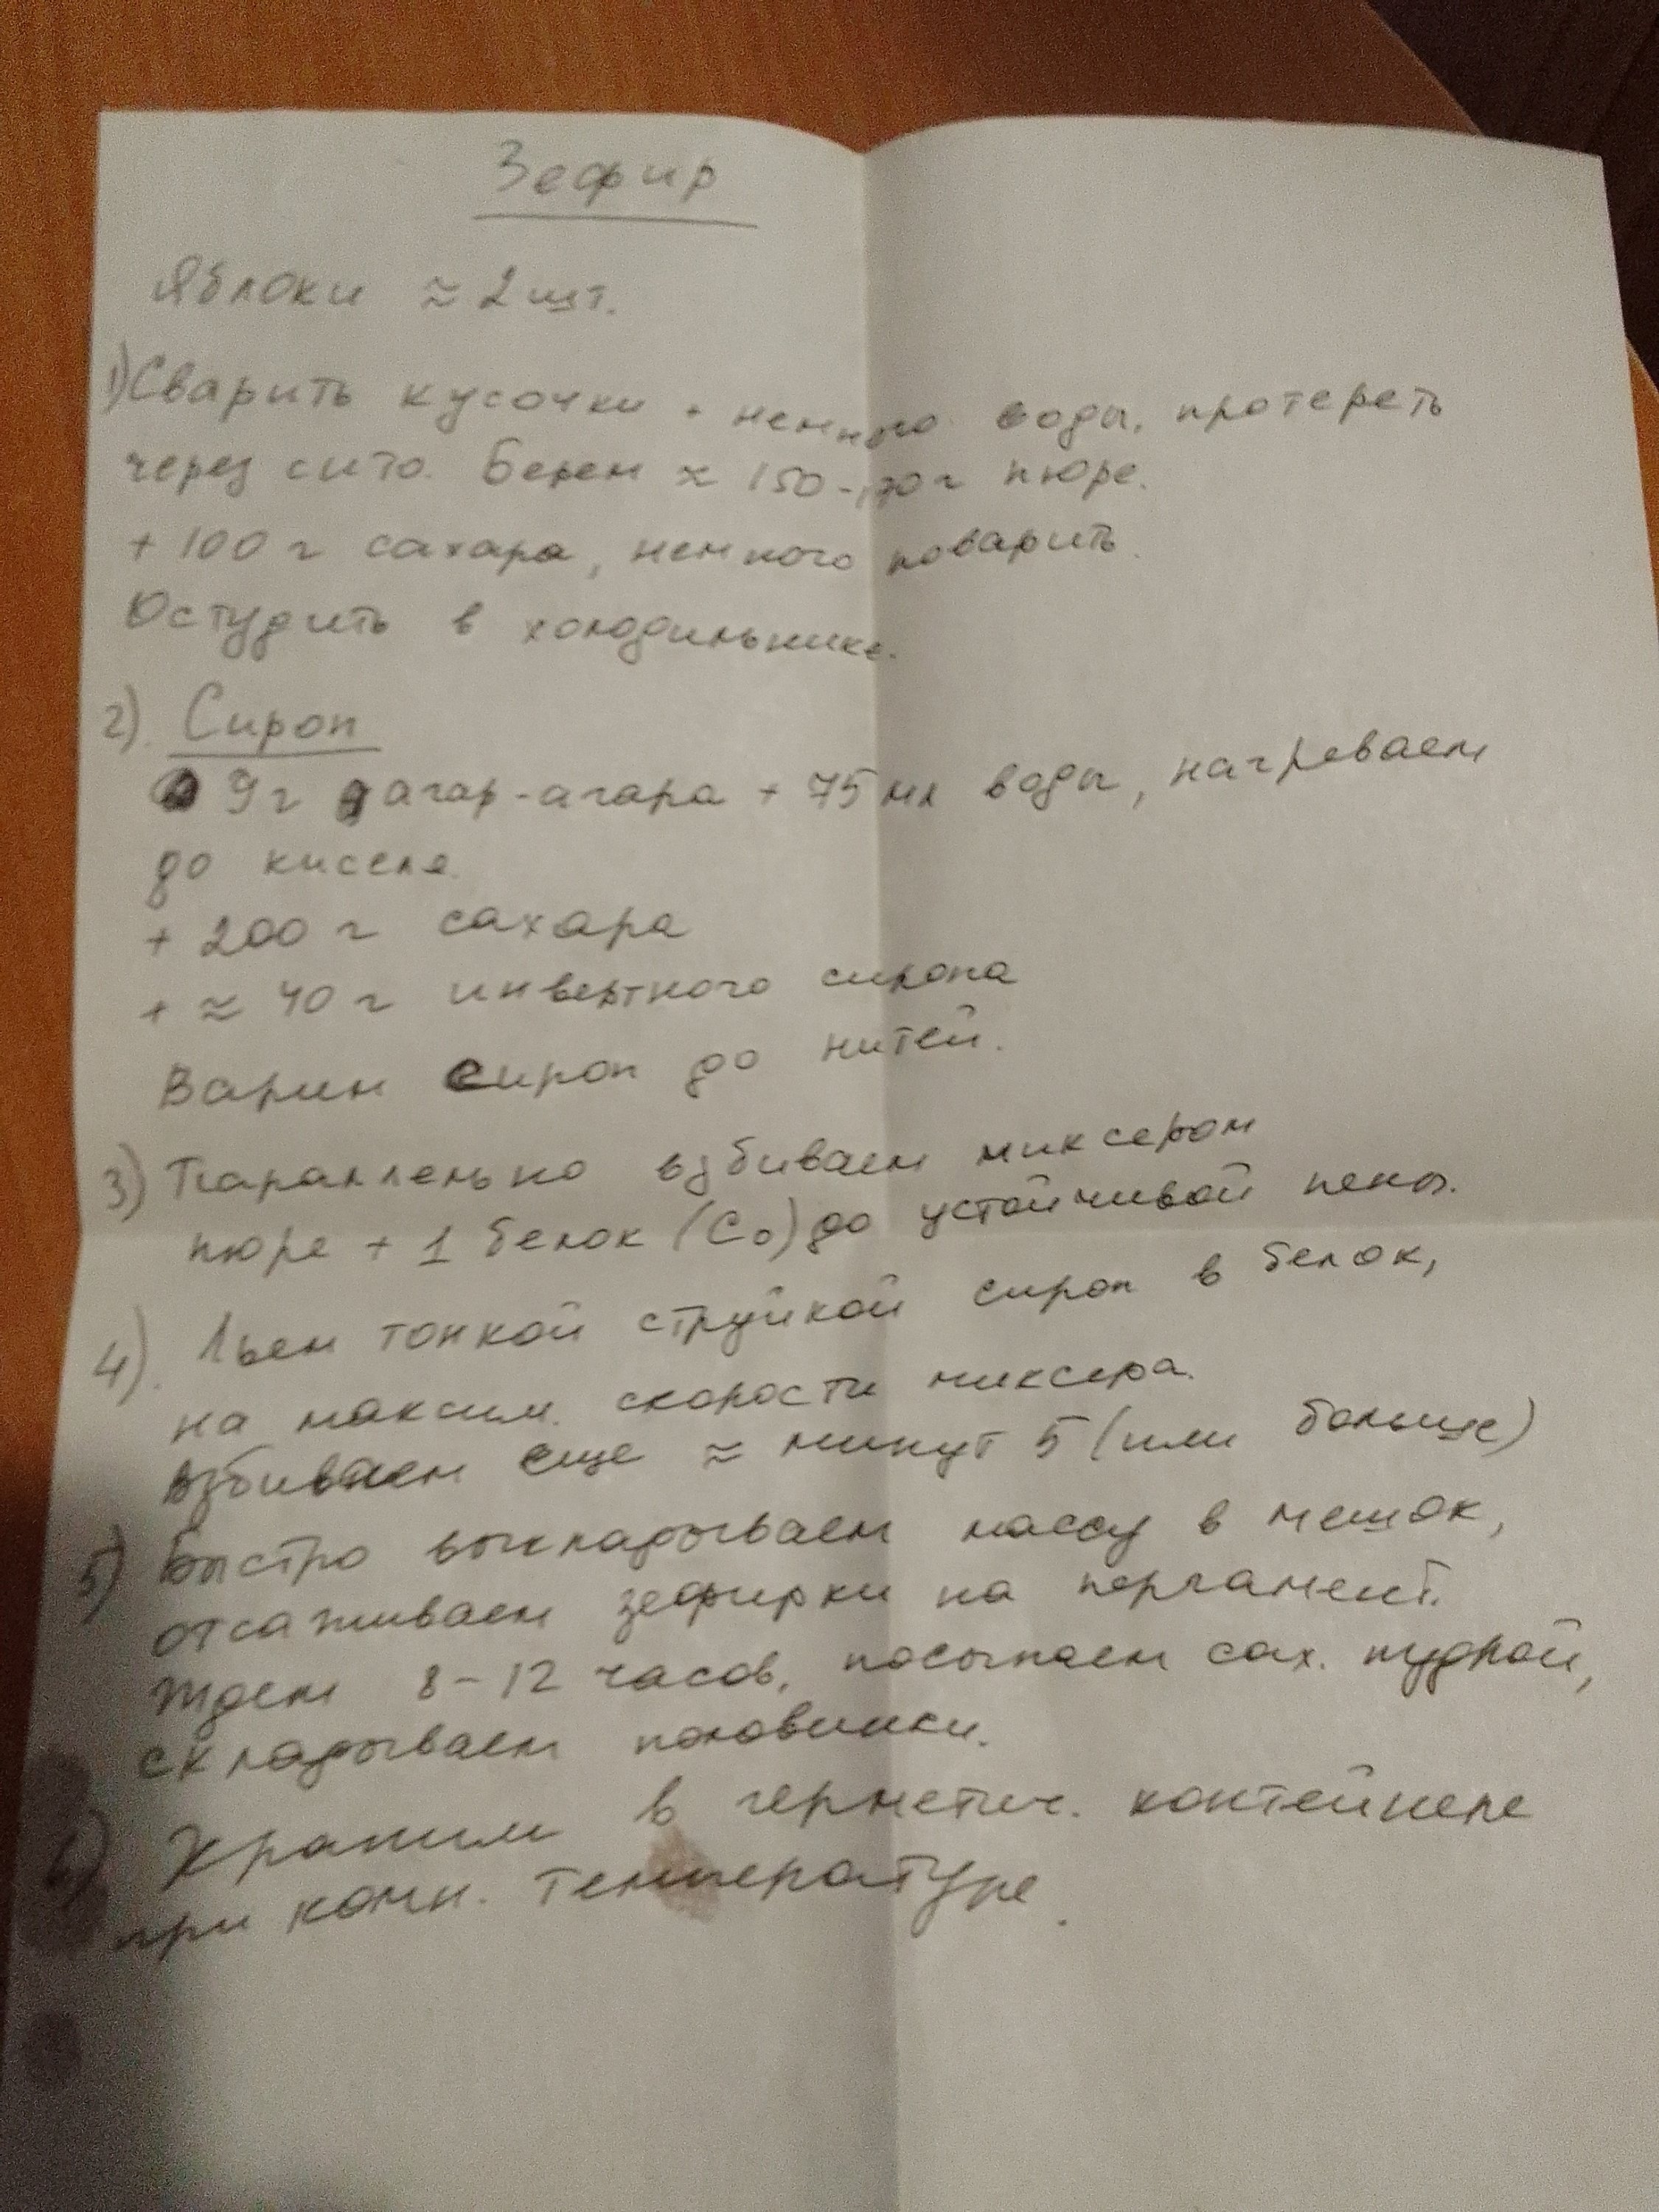 Зефир
Яблоки ≈ 2 шт.
1) Сварить кусочки + немного воды, протереть
через сито. Берем ≈ 150-170 г пюре.
+ 100 г сахара, немного поварить.
Остудить в холодильнике.
2). Сироп
9 г агар-агара + 75 мл воды, нагреваем
до киселя.
+ 200 г сахара
+ ≈ 40 г инвертного сиропа
Варим сироп до нитей.
3) Параллельно взбиваем миксером
пюре + 1 белок (С0) до устойчивой пены.
4). Льем тонкой струйкой сироп в белок,
на максим. скорости миксера.
Взбиваем еще ≈ минут 5 (или больше)
5) Быстро выкладываем массу в мешок,
отсаживаем зефирки на пергамент.
Ждем 8-12 часов, посыпаем сах. пудрой,
складываем половинки.
6) Храним в герметич. контейнере
при комн. температуре.